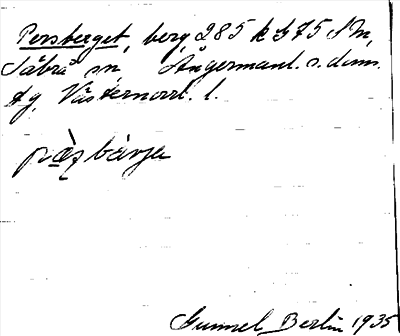 Persberget, berg 285 k 575 SPm,
Säbrå sn, Ångermanl. s. doms.
dg. Västernorrl. l.
pæ̀ʐbærja
Gunnel Berlin 1935